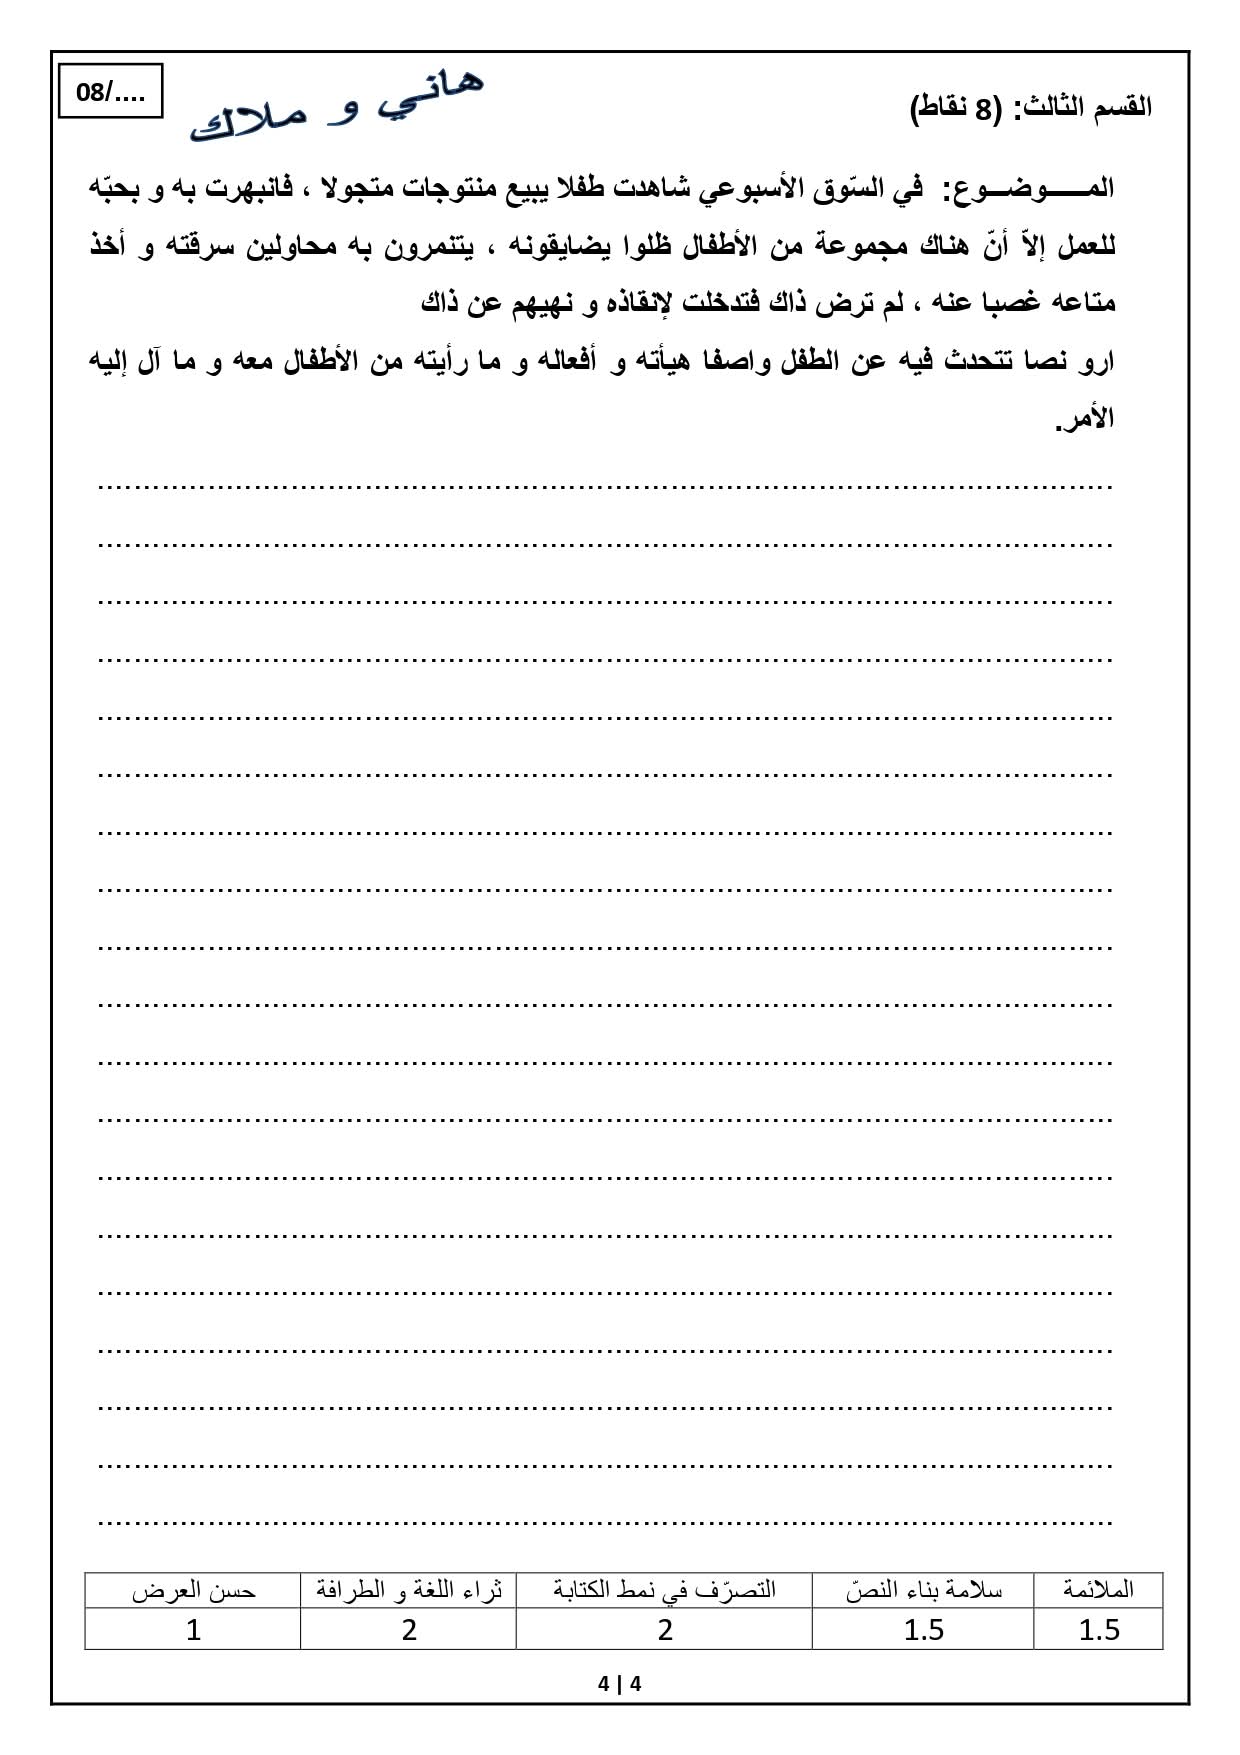 القسم الثالث: (8 نقاط)
هاني و ملاك
08/....
المـــــوضـــوع: في السّوق الأسبوعي شاهدت طفلا يبيع منتوجات متجولا ، فانبهرت به و بحبّه
للعمل إلاّ أنّ هناك مجموعة من الأطفال ظلوا يضايقونه ، يتنمرون به محاولين سرقته و أخذ
متاعه غصبا عنه ، لم ترض ذاك فتدخلت لإنقاذه و نهيهم عن ذاك
ارو نصا تتحدث فيه عن الطفل واصفا هيأته و أفعاله و ما رأيته من الأطفال معه و ما آل إليه
الأمر.
الملائمة سلامة بناء النصّ التصرّف في نمط الكتابة ثراء اللغة و الطرافة حسن العرض
1.5 1.5 2 2 1
4 | 4